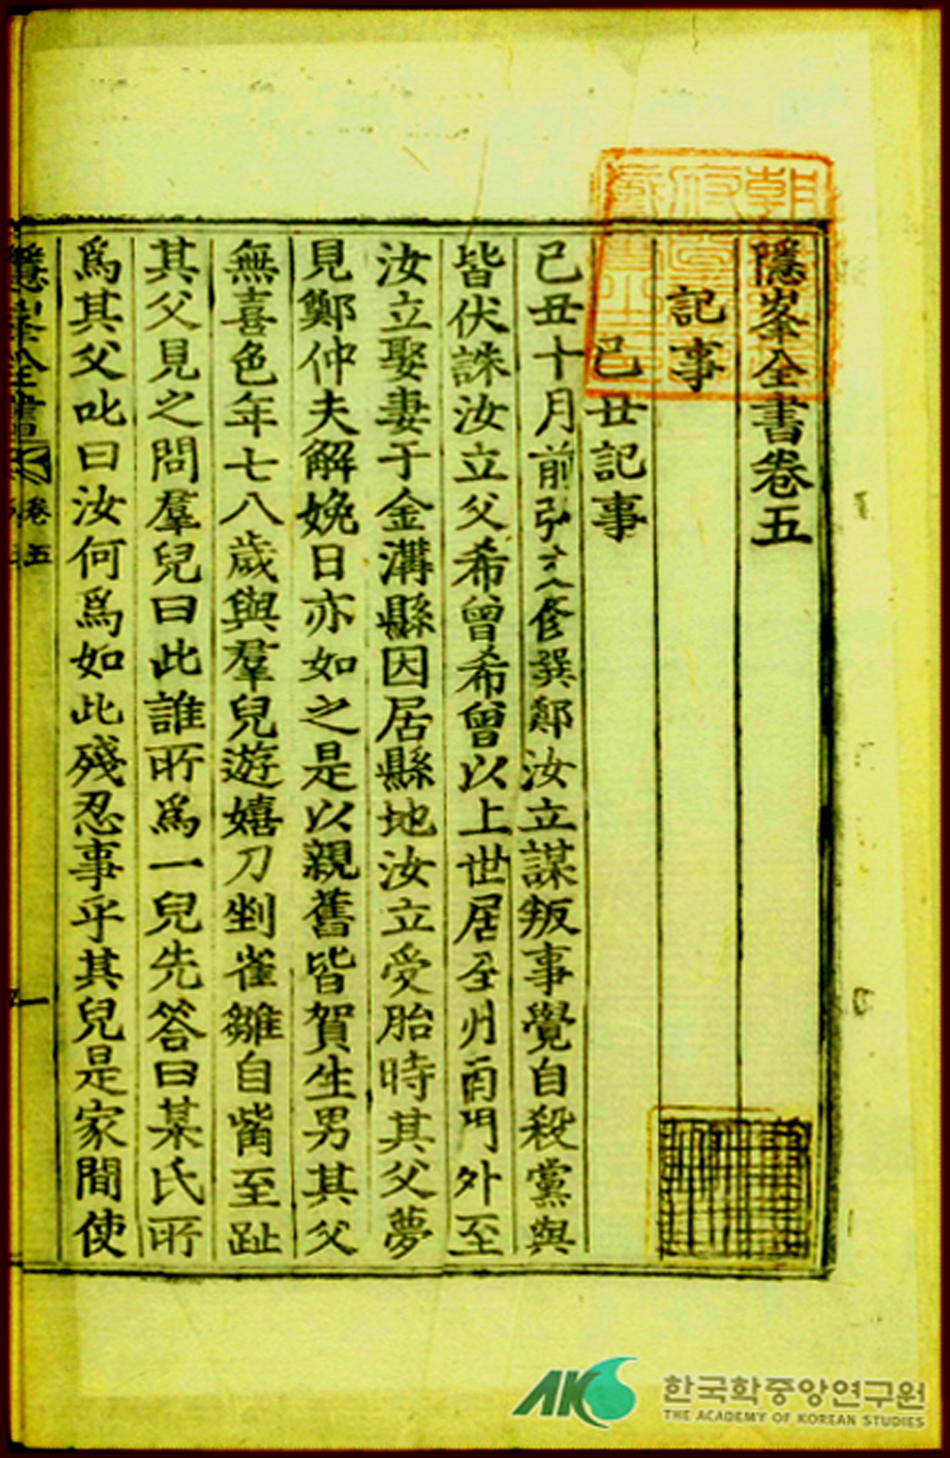 隱峯全書卷五
記事
己丑記事
己丑十月前修撰鄭汝立謀叛事覺自殺黨與
皆伏誅汝立父希曾希曾以上世居全州南門外至
汝立娶妻于金溝縣因居縣地汝立受胎時其父夢
見鄭仲夫解娩日亦如之是以親舊皆賀生男其父
無喜色年七八歲與羣兒遊嬉刀剉雀雛自觜至趾
其父見之問羣兒曰此誰所爲一兒先答曰某氏所
爲其父叱曰汝何爲如此殘忍事乎其兒是家間使
隱峯全書
卷五
一
AKS 한국학중앙연구원
THE ACADEMY OF KOREAN STUDIES